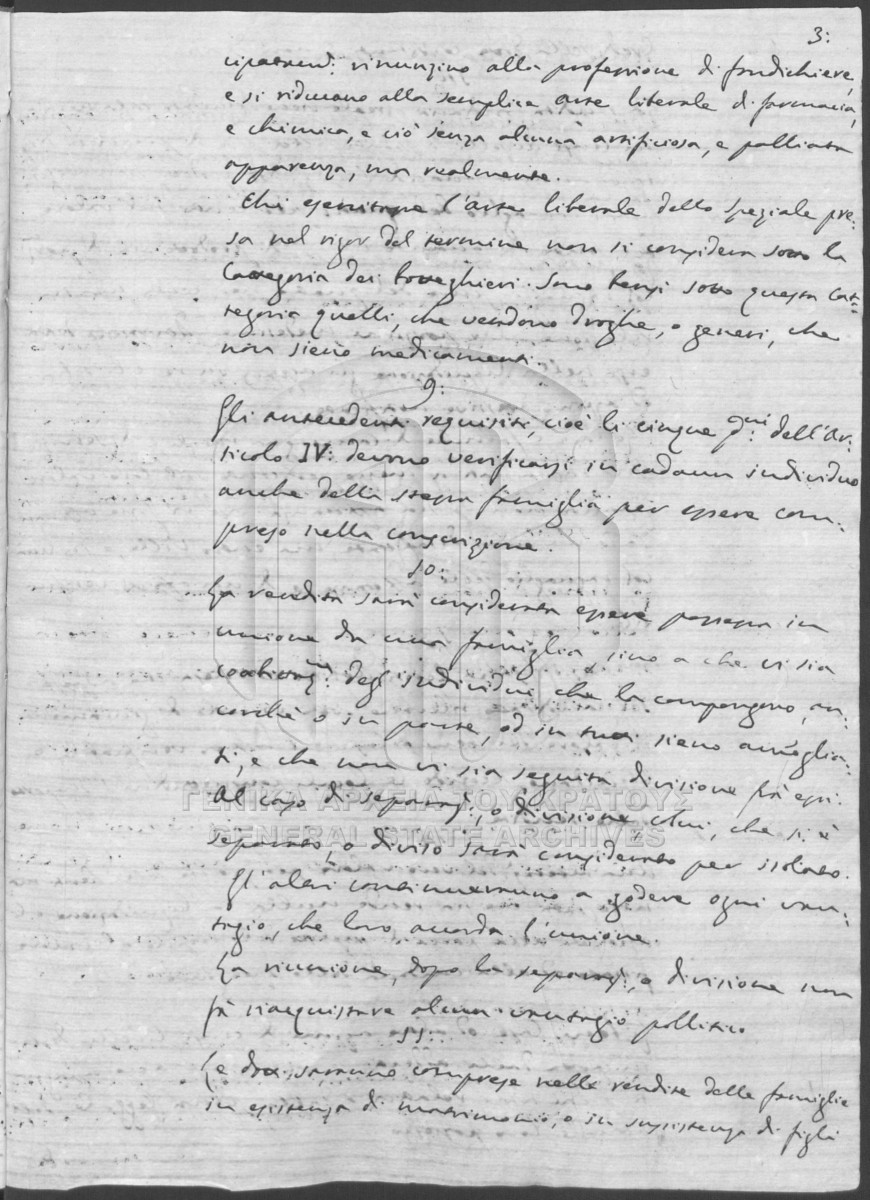 3:
cipatend: rinunzino alla professione di fondichiere,
e si riducano alla semplice arte liberale di farmacia,
e chimica, e ciò senza alcuna artificiosa, e palliata
apparenza, ma realmente.
Chi esercitasse l'arte liberale dello Speziale pre:
sa nel rigor del termine non si considera sotto la
Categoria dei botteghieri. Sono bensì sotto questa Cat=
tegoria quelli, che vendono droghe, o generi, che
non sieno medicamenti.
9:
Gli antecedenti requisiti, cioè li cinque dell'Ar:
ticolo IV: devono verificarsi in cadaun individuo
anche della stessa famiglia per essere com:
preso nella conscrizione.
10:
La rendita sarà considerata essere posseduta in
unione da una famiglia sino a che vi sia
degl'individui che la compongono, an:
corchè o in parte, od in tutto sieno ammoglia:
ti, e che non vi sia seguita divisione frà essi.
Al caso di separaz:, o divisione chi, che si è
separato, o diviso sarà considerato per isolato.
Gl'altri continueranno a godere ogni van:
tagio, che loro accorda l'unione.
La riunione, dopo la separaz:, o divisione non
fà riacquistare alcun vantagio pollitico
11:
Le doti saranno comprese nelle rendite delle famiglie
in esistenza di matrimonio, o in sussistenza di figli
ΓΕΝΙΚΑ ΑΡΧΕΙΑ ΤΟΥ ΚΡΑΤΟΥΣ
GENERAL STATE ARCHIVES